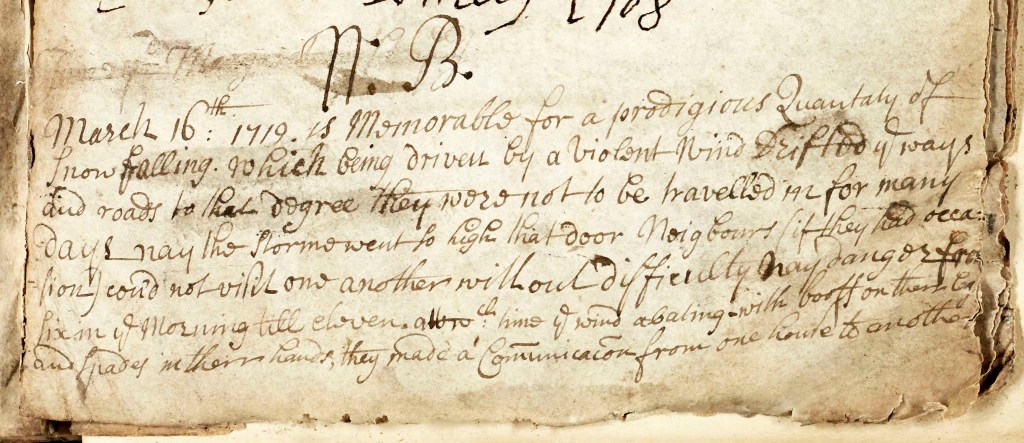 1708
N. B.
March 16th: 1719. is Memorable for a prodigious Quantaty of
Snow falling. which being driven by a violent Wind Drifted ye ways
and roads to that degree they were not to be travelled in for many
days nay the storme went so high that door Neigbours (if they had occa:
sion) could not visit one another without difficulty nay danger from
six in ye Morning till eleven. wch time ye wind abating with boots on their
and spades in thers hands, they made a Com̄unicac̄on from one house to another